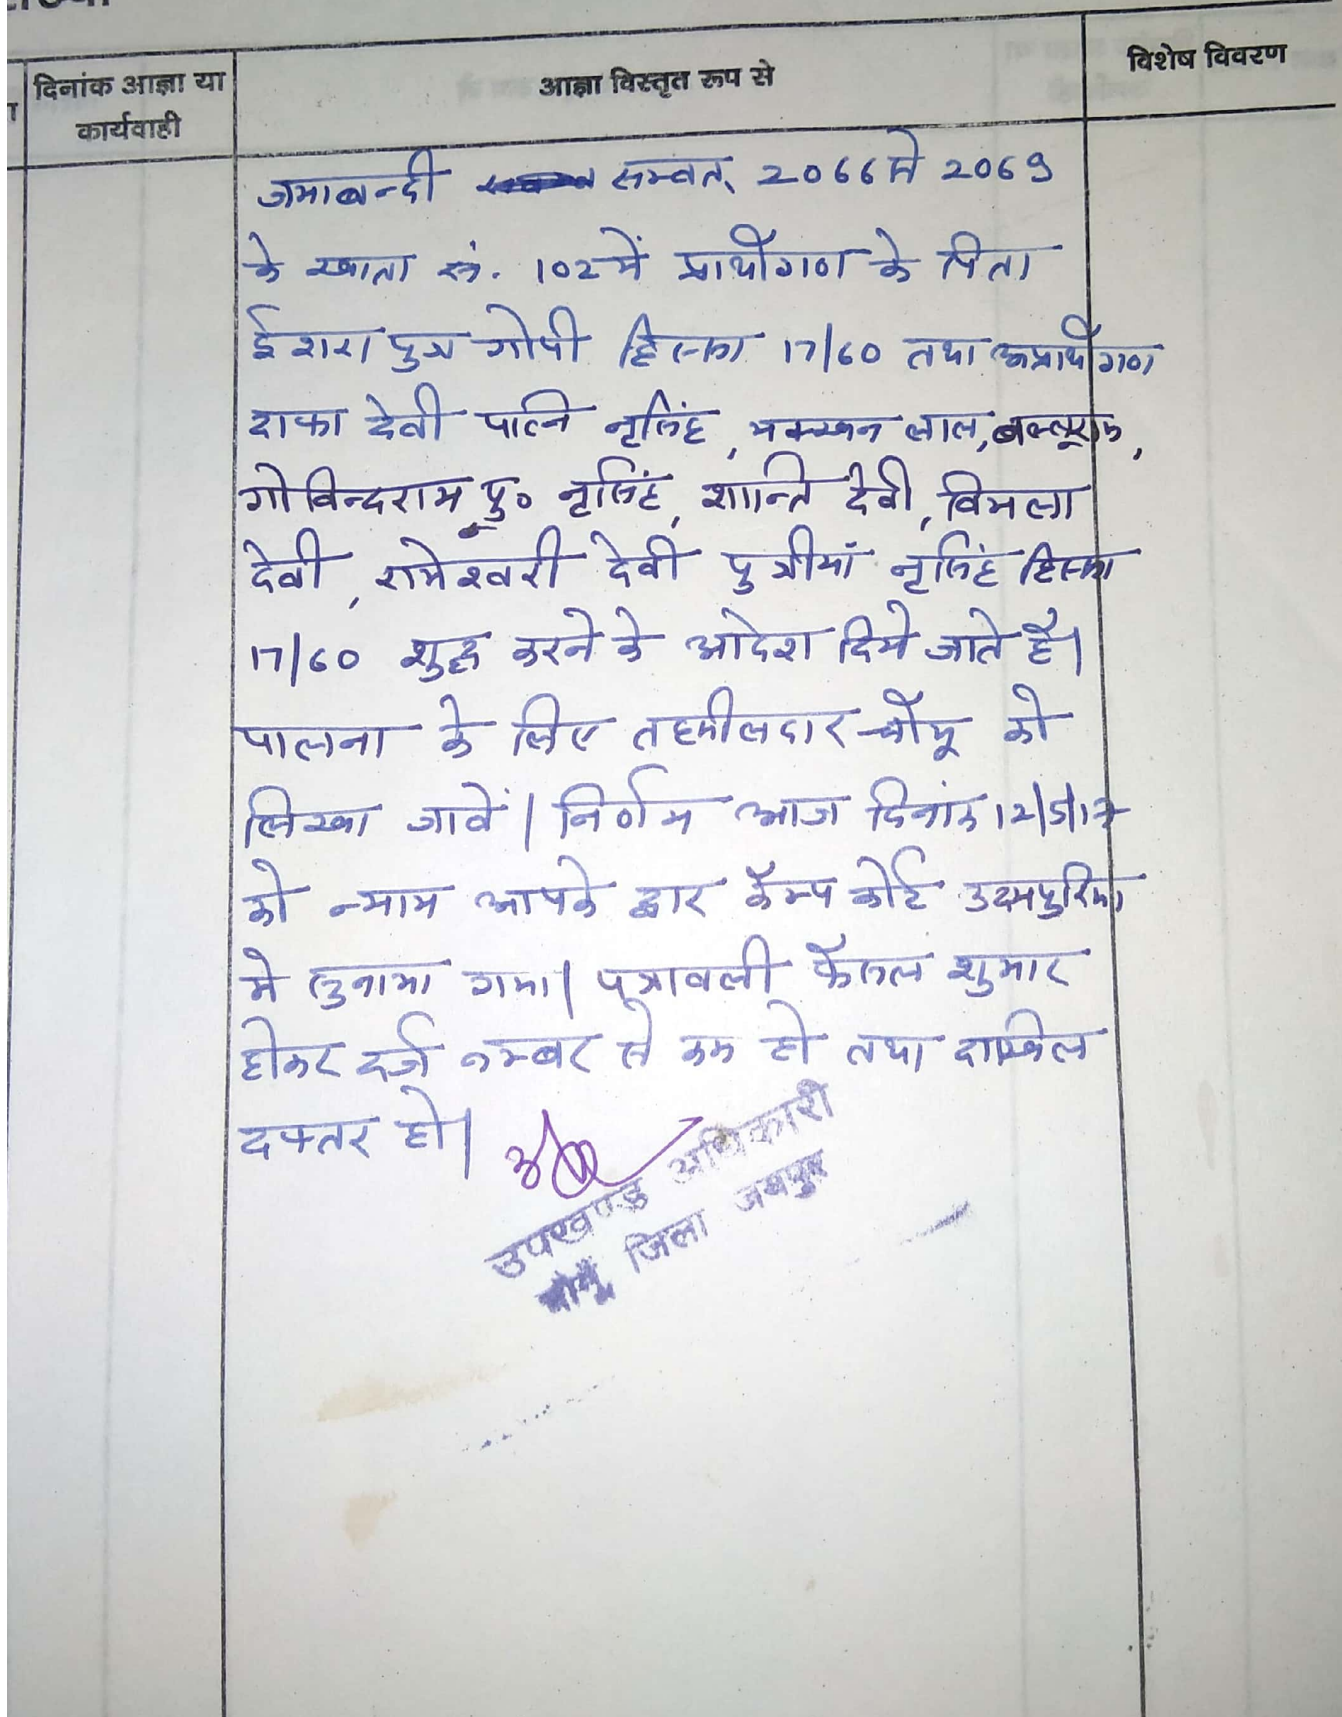 दिनांक आज्ञा या
कार्यवाही
आज्ञा विस्तृत रूप से
विशेष विवरण
जमाबन्दी सम्वत् 2066 से 2069
के खाता सं. 102 में प्रार्थीगण के पिता
ईशरा पुत्र गोपी हिस्सा 17/60 तथा अप्रार्थीगण
देवी पत्नि नृसिंह, मक्खन लाल,
गोविन्दराम पु० नृसिंह, शान्ति देवी, विमला
देवी, रामेश्वरी देवी पुत्रीयाँ नृसिंह हिस्सा
17/60 शुद्ध करने के आदेश दिये जाते है।
पालना के लिए तहसीलदार चौमू को
लिखा जावें। निर्णय आज दिनांक 12/5/17
को न्याय आपके द्वार कैम्प कोर्ट उदयपुरिया
मे सुनाया गया। पत्रावली फैसल शुमार
होकर दर्ज नम्बर से कम हो तथा दाखिल
दफ्तर हो।
उपखण्ड अधिकारी
चौमूं जिला जयपुर